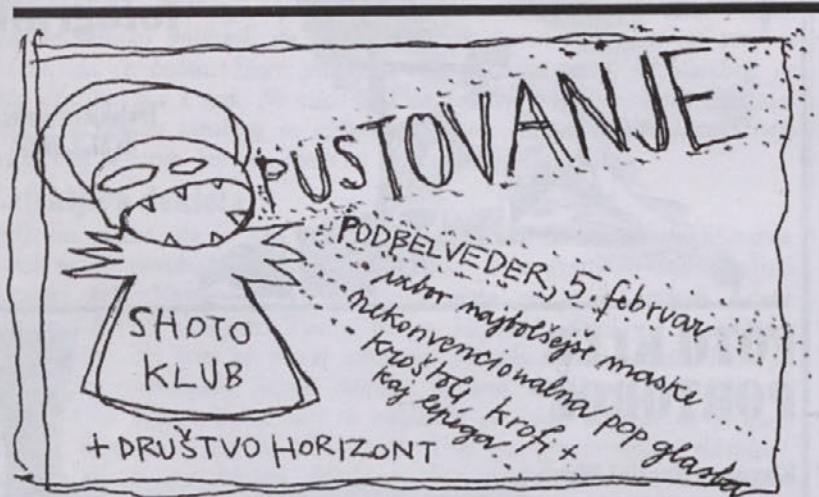 PUSTOVANJE
PODBELVEDER, 5. februar
izbor najboljše maske
nekonvencionalna pop glasba
kroštolj krofi +
kaj lepega
SHOTO
KLUB
+ DRUŠTVO HORIZONT